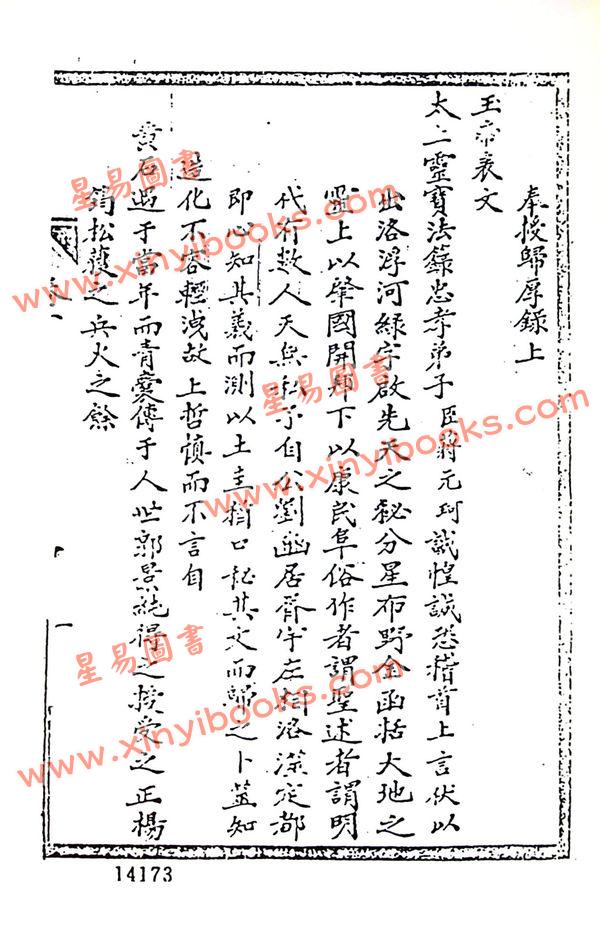 奉授歸厚錄上
玉帝表文
太上靈寶法籙忠孝弟子臣蔣元珂誠惶誠恐稽首上言伏以
出洛浮河綠字啟先天之秘分星布野金函括大地之
靈上以肇國開邦下以康民阜俗作者謂聖述者謂明
代有數人天無私予自公劉豳居胥宇左相洛澨定都
即心知其義而測以土圭猶口祕其文而歸之卜蓋知
造化不容輕洩故上哲慎而不言自
黃石遇于當年而青囊傳于人世郭景純得之授受之正楊
筠松獲之兵火之餘
一
星易圖書
www.xinyibooks.com
星易圖書
www.xinyibooks.com
星易圖書
www.xinyibooks.com
14173